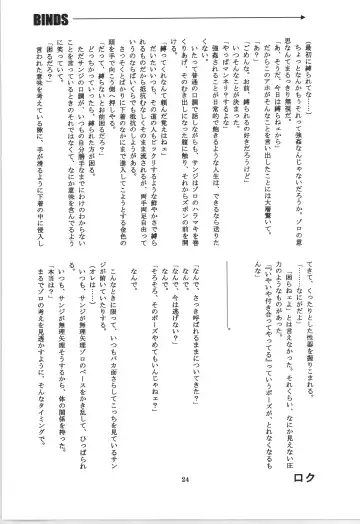 BINDS
(最初に縛られてな……)
ちょっとなんかもうそれって強姦なんじゃないだろうか。ゾロの意
思なんてまるっきり無視だ。
「あ、そうだ、今日は縛らねェから」
だからこのアホがそんなことを言い出したことには大層驚いて。
「あ?」
「ごめんな、お前、縛られるの好きだろうけど」
いつそんなことが決まった。
強姦されることが日常的で飽きるような人生は、できるなら送りた
いたって普通の口調で話しながらも、サンジはゾロのハラマキを巻
くりあげ、そのむき出しになった腹に触り、それからズボンの前を開
「縛ってくれなんて頼んだ覚えはねェ」
だいたいいつも、その道の人もビックリするような鮮やかさで縛ら
れるから抵抗もむなしくそのまま流されるが、両手両足自由って
いうのならばいくらでも抵抗のしようがある。
さっそくとばかりに下着のなかにまで進入しようとする金色の
「だって、縛らないとお前困るだろ?」
どっちかっていったら、縛られた方が困る。
ただサンジの口調が、いつもの自分勝手なまでにわけのわからない
ことを言っているときのそれではなくて、なにか意味を含んでるよう
に笑っていて。
「困るだろ?」
言われた意味を考えている隙に、手が滑るように下着の中に侵入し
てきて、くったりとした性器を握りこまれる。
「……なにがだよ」
「困らねェよ」とは言えなかった。それくらい、なにか見えない圧
力のようなものがあった。
「『いやいや付き合ってやってる』っていうポーズが、とれなくなるも
な」
「なんで、さっき呼ばれるままについてきた?」
「なんで、今は逃げない?」
「そろそろ、そのポーズやめてもいんじゃねェ?」
なんで。
こんなときに限って、いつもバカ面さらしてこっちを見ているサン
ジが俯いていたりする。
「オレは……」
いつも、サンジが無理矢理そうするから、体の関係を持った。
いつも、サンジが無理矢理ゾロのペースをかき乱して、ひっぱられ
「本当は?」
まるでゾロの考えを見透かすように、そんなタイミングで。
24
ロク